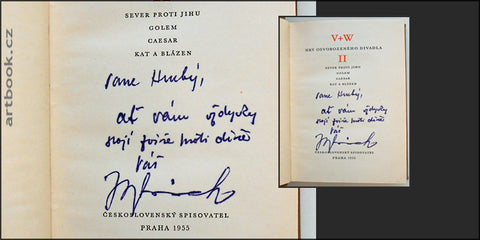 artbook.cz
SEVER PROTI JIHU
GOLEM
CAESAR
KAT A BLÁZEN
Pane Hrubý,
ať vám vždycky
stojí
Váš
ČESKOSLOVENSKÝ SPISOVATEL
PRAHA 1955
V+W
HRY OSVOBOZENÉHO DIVADLA
II
SEVER PROTI JIHU
GOLEM
CAESAR
KAT A BLÁZEN
Pane Hrubý,
ať vám vždycky
stojí
Váš
ČESKOSLOVENSKÝ SPISOVATEL
PRAHA 1955